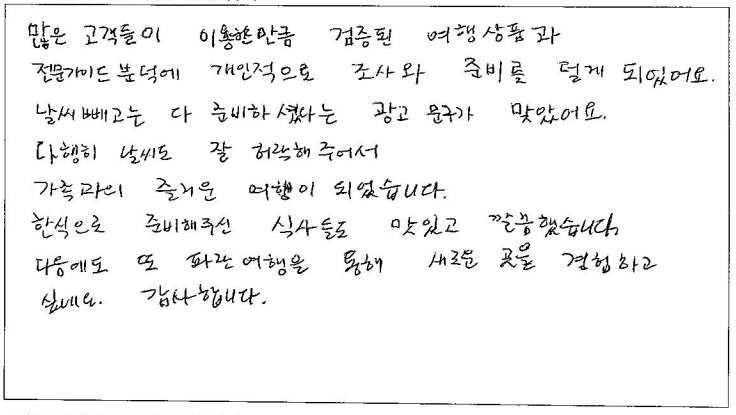 많은 고객들이 이용한만큼 검증된 여행상품과
전문가이드분덕에 개인적으로 조사와 준비를 덜게 되었어요.
날씨빼고는 다 준비하셨다는 광고 문구가 맞았어요.
다행히 날씨도 잘 허락해주어서
가족과의 즐거운 여행이 되었습니다.
한식으로 준비해주신 식사들도 맛있고 깔끔했습니다.
다음에도 또 파란여행을 통해 새로운 곳을 경험하고
싶네요. 감사합니다.